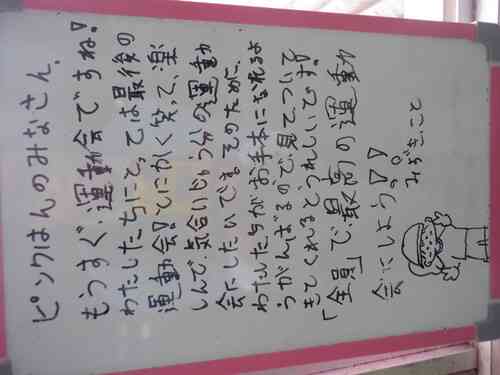 ピンクはんのみなさん.
もうすぐ運動会ですね!
わたしたちにとっては最後の
運動会!とにかく笑って、楽
しんで、気合いじゅう分の運動
会にしたいです。そのために、
わたしたちがお手本になれるよ
うがんばるので、見てついて
きてくれるとうれしいです!
「全員」で最高の運動
会にしよう。!!
みずきこと